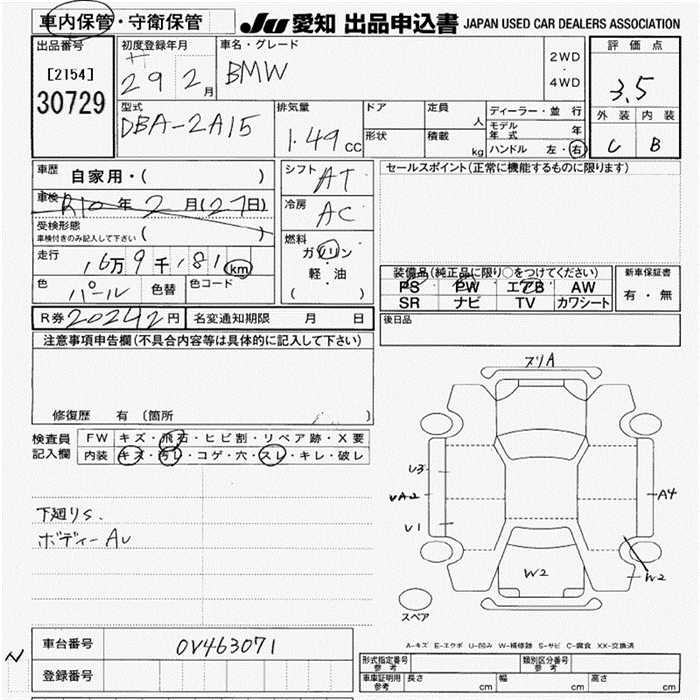 車内保管・守衛保管
JU 愛知 出品申込書 JAPAN USED CAR DEALERS ASSOCIATION
出品番号
[2154]
30729
初度登録年月
H
29 2月
車名・グレード
BMW
2WD
・
4WD
評価点
3.5
外装 内装
C B
型式
DBA-2A15
排気量
1.49cc
ドア
形状
定員
人
積載
kg
ディーラー・並行
モデル年式 年
ハンドル 左・右
車歴
自家用・( )
車検 R10年2月(27日)
受検形態
車検付きのみ記入して下さい ( )
走行
16万9千181km
色 パール 色替 色コード
R券 20242円 名変通知期限 月 日
シフト AT
冷房 AC
燃料
ガソリン
軽・油
( )
セールスポイント(正常に機能するものに限ります)
装備品(純正品に限り○をつけてください)
PS PW エアB AW
SR ナビ TV カワシート
新車保証書
有・無
後日品
注意事項申告欄(不具合内容等は具体的に記入して下さい)
修復歴 有 (箇所 )
検査員
記入欄
FW キズ・飛石・ヒビ割・リペア跡・X要
内装 キズ・汚レ・コゲ・穴・スレ・キレ・破レ
下廻りS.
ボディーAU
スリA
U3
UA2
U1
A4
W2
W2
スペア
A-キズ E-エクボ U-凹み W-補修跡 S-サビ C-腐食 XX-交換済
車台番号 0V463071
登録番号
形式指定番号
参考
類別区分番号
参考
車庫証明用
参考
長さ cm 幅 cm 高さ cm